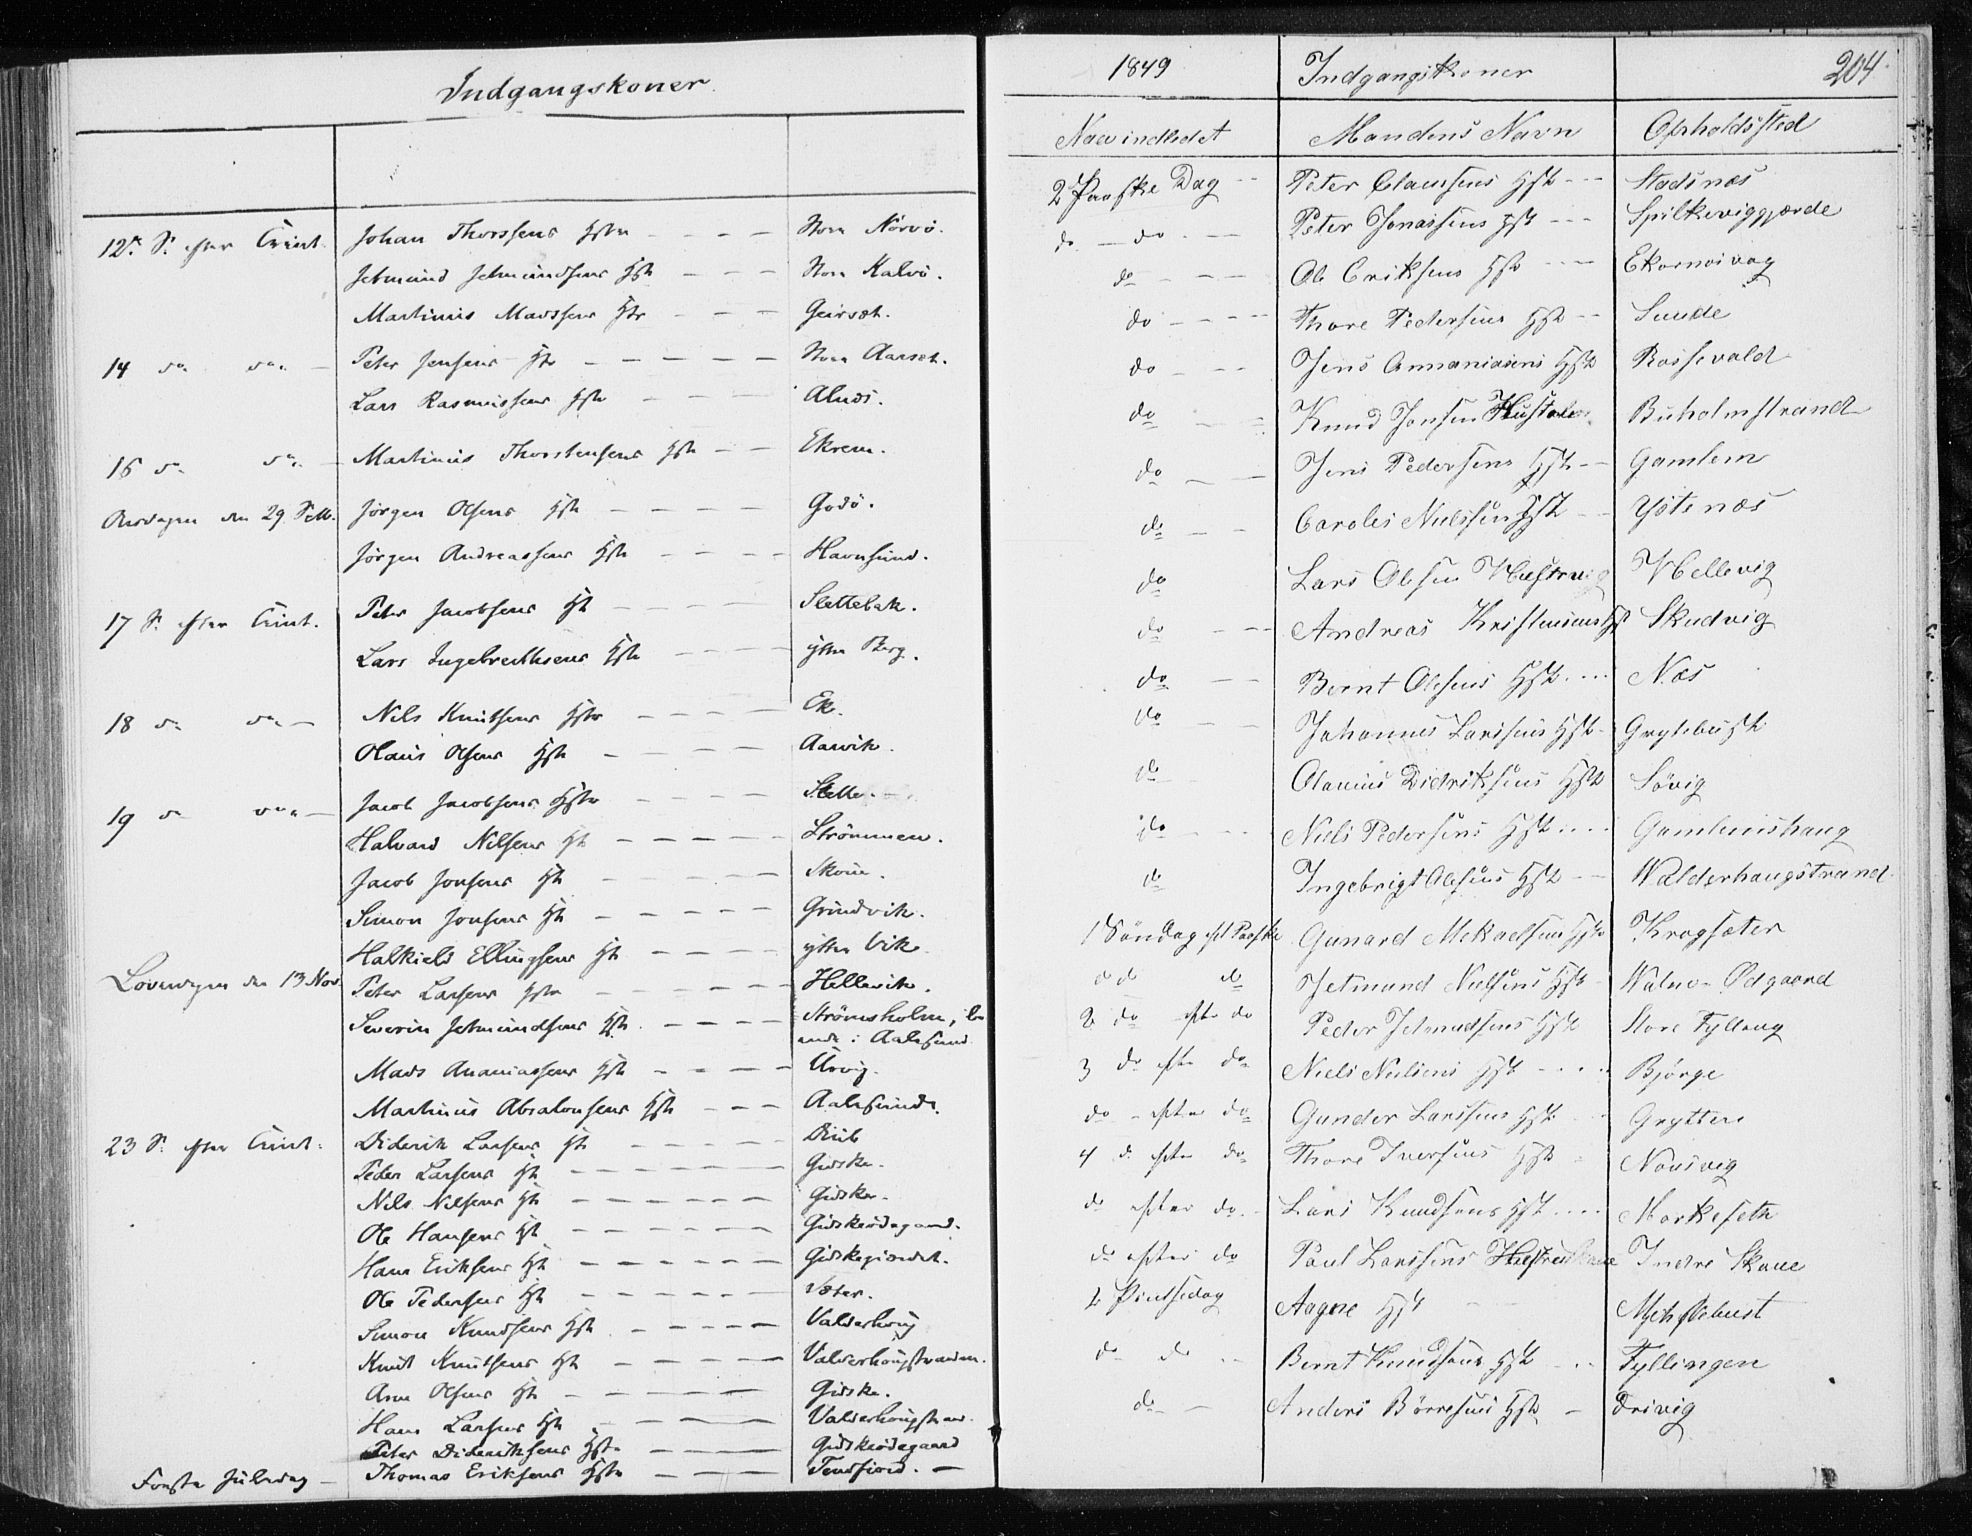 Indgangskoner.
12te S. efter Trinit. Johan Thorssens Hstr Store Nørvø.
Jetmund Jetmundsens Hst Store Kalvø.
Martinus Madssens Hst Geirset.
14 do do Peter Jensens Hst Store Aarset.
Lars Rasmussens Hst Alnæs.
16 do do Martinus Thorstensens Hst Ekrem.
Onsdagen den 29 Jørgen Olsens Hst Godø.
Jørgen Andreassens Hst Havnsund.
17 S. efter Trinit. Peter Jacobsens Hst Slettebak.
Lars Ingebrechtsens Hst ytre Berg.
18 do do Nils Knutsens Hstr Ek.
Olaus Olsens Hst Aarvik.
19 do do Jacob Jacobsens Hstr Slette.
Halvard Nilsens Hst Strømmen.
Jacob Jonsens Hst Skoue.
Simon Jonsens Hst Grundvik.
Halkield Ellingsens Hst ytre Vik.
Løverdagen den 13 Nov. Peter Larsens Hstr Hellevik.
Severin Jetmundsens Hst Strømsholm, bo
ende i Aalesund
Mads Ananiassens Hst Urvig.
Martinus Absalonsens Hst Aalesund.
23 S. efter Trinit. Diderik Larsens Hst Dub
Peder Larsens Hst Gidske.
Nils Nilsens Hst Gidske.
Ole Hansens Hst Gidskeødegaard.
Hans Eriksens Hst Gidskegjærdet.
Ole Pedersens Hst Sæter.
Simon Knudsens Hst Valderhoug
Knut Knutsens Hst Valderhougstranden.
Arne Olsens Hst Gidske.
Hans Larsens Hst Valderhougstrand.
Peter Dideriksens Hst Gidskeødegaard
Første Juledag Thomas Eriksens Hstr Tennfjord.
1849 Indgangskoner 204
Naar indledet Mandens Navn Opholdssted
2 Paaske Dag Peter Clausens Hst Stadsnæs
do do Peter Jonassens Hst Spilkeviggjærde
do Ole Eriksens Hst Ekornesvog
do Thore Pedersens Hst Sunde
do Jens Annaniasens Hst Rossevald
do Knud Jonsen Hustrue Buholmstrand
do Jens Pedersens Hst Gamlem
do Caroles Nielssens Hst Ystenæs
do Lars Olesen Hustrue Hellevig
do Andreas Kristensens Hst Skudvig
do Bernt Olesens Hst Næs
do Johannes Larssens Hst Grytebust
do Olanius Didriksens Hst Søvig
do Niels Pedersens Hst Gamlemshaug
do Ingebrigt Olesens Hst Walderhaugstrand
1 Søndag eft Paaske Gunard Mekaelsens Hst Krogsæter
do do Jetmund Nielsens Hst Walnæ Ødgaard
2 do efter do Peder Jetmudsens Hst Store Fylling
3 do efter do Niels Nielsens Hst Bjørge
do efter do Gunder Larssens Hst Gryttere
4 do efter do Thore Iversens Hst Nousvig
do efter do Lars Knudsens Hst Morkeseth
do efter do Paul Larssens Hustrue Indre Skoue
2 Pintsedag Aagne Hst Myklebust
do do Bernt Knudsens Hst Fyllingen
do Anders Børresens Hst Drivig